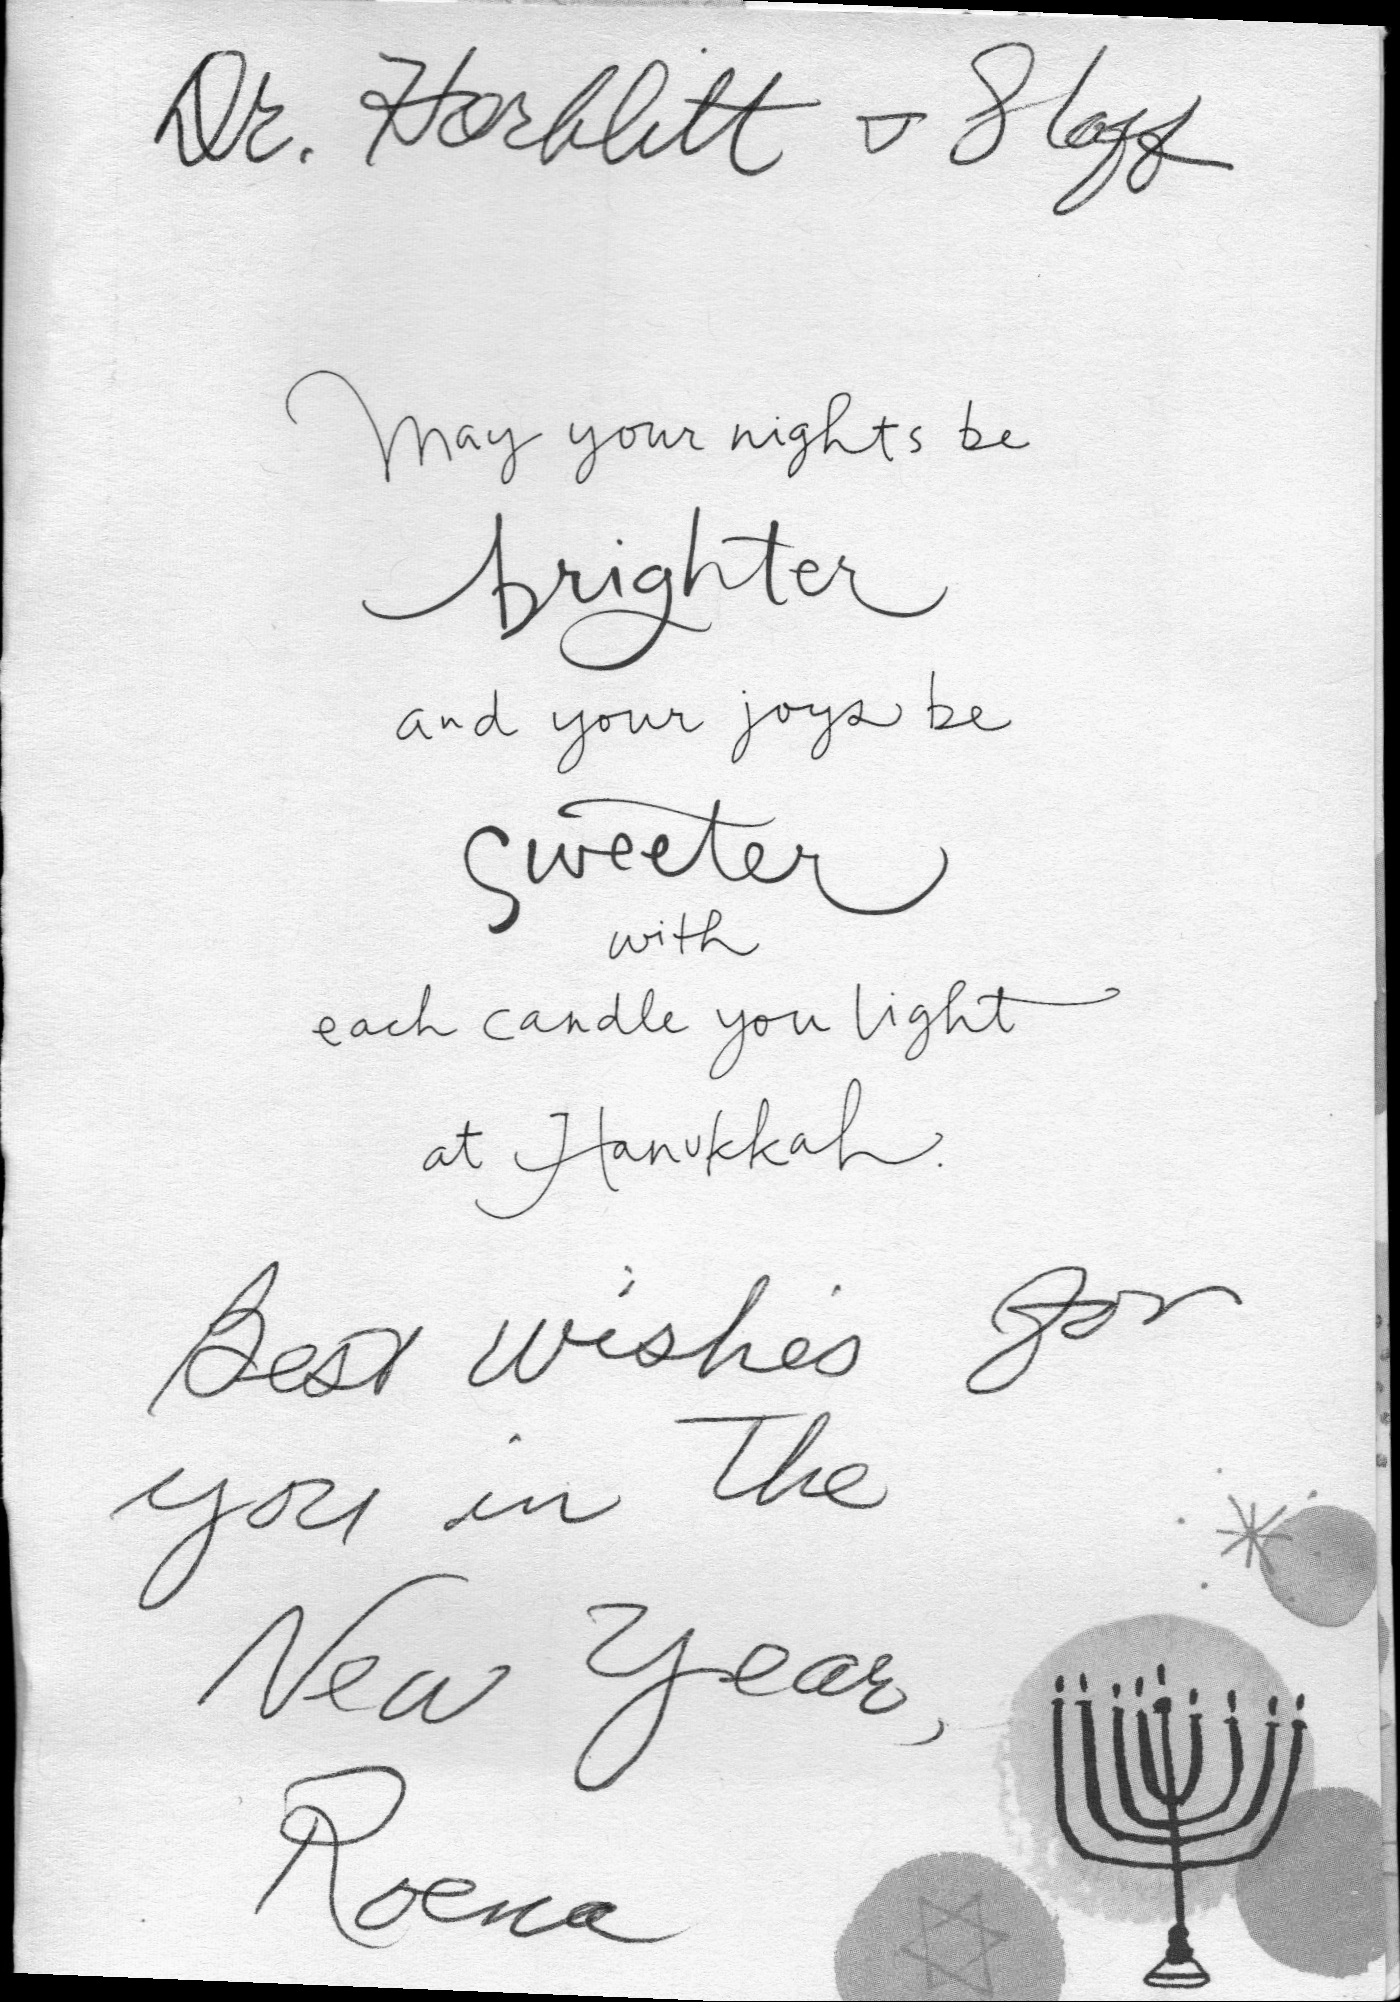 Dr. Horblitt & Staff
May your nights be
brighter
and your joys be
sweeter
with
each candle you light
at Hanukkah.
Best wishes for
you in The
New Year,
Roena